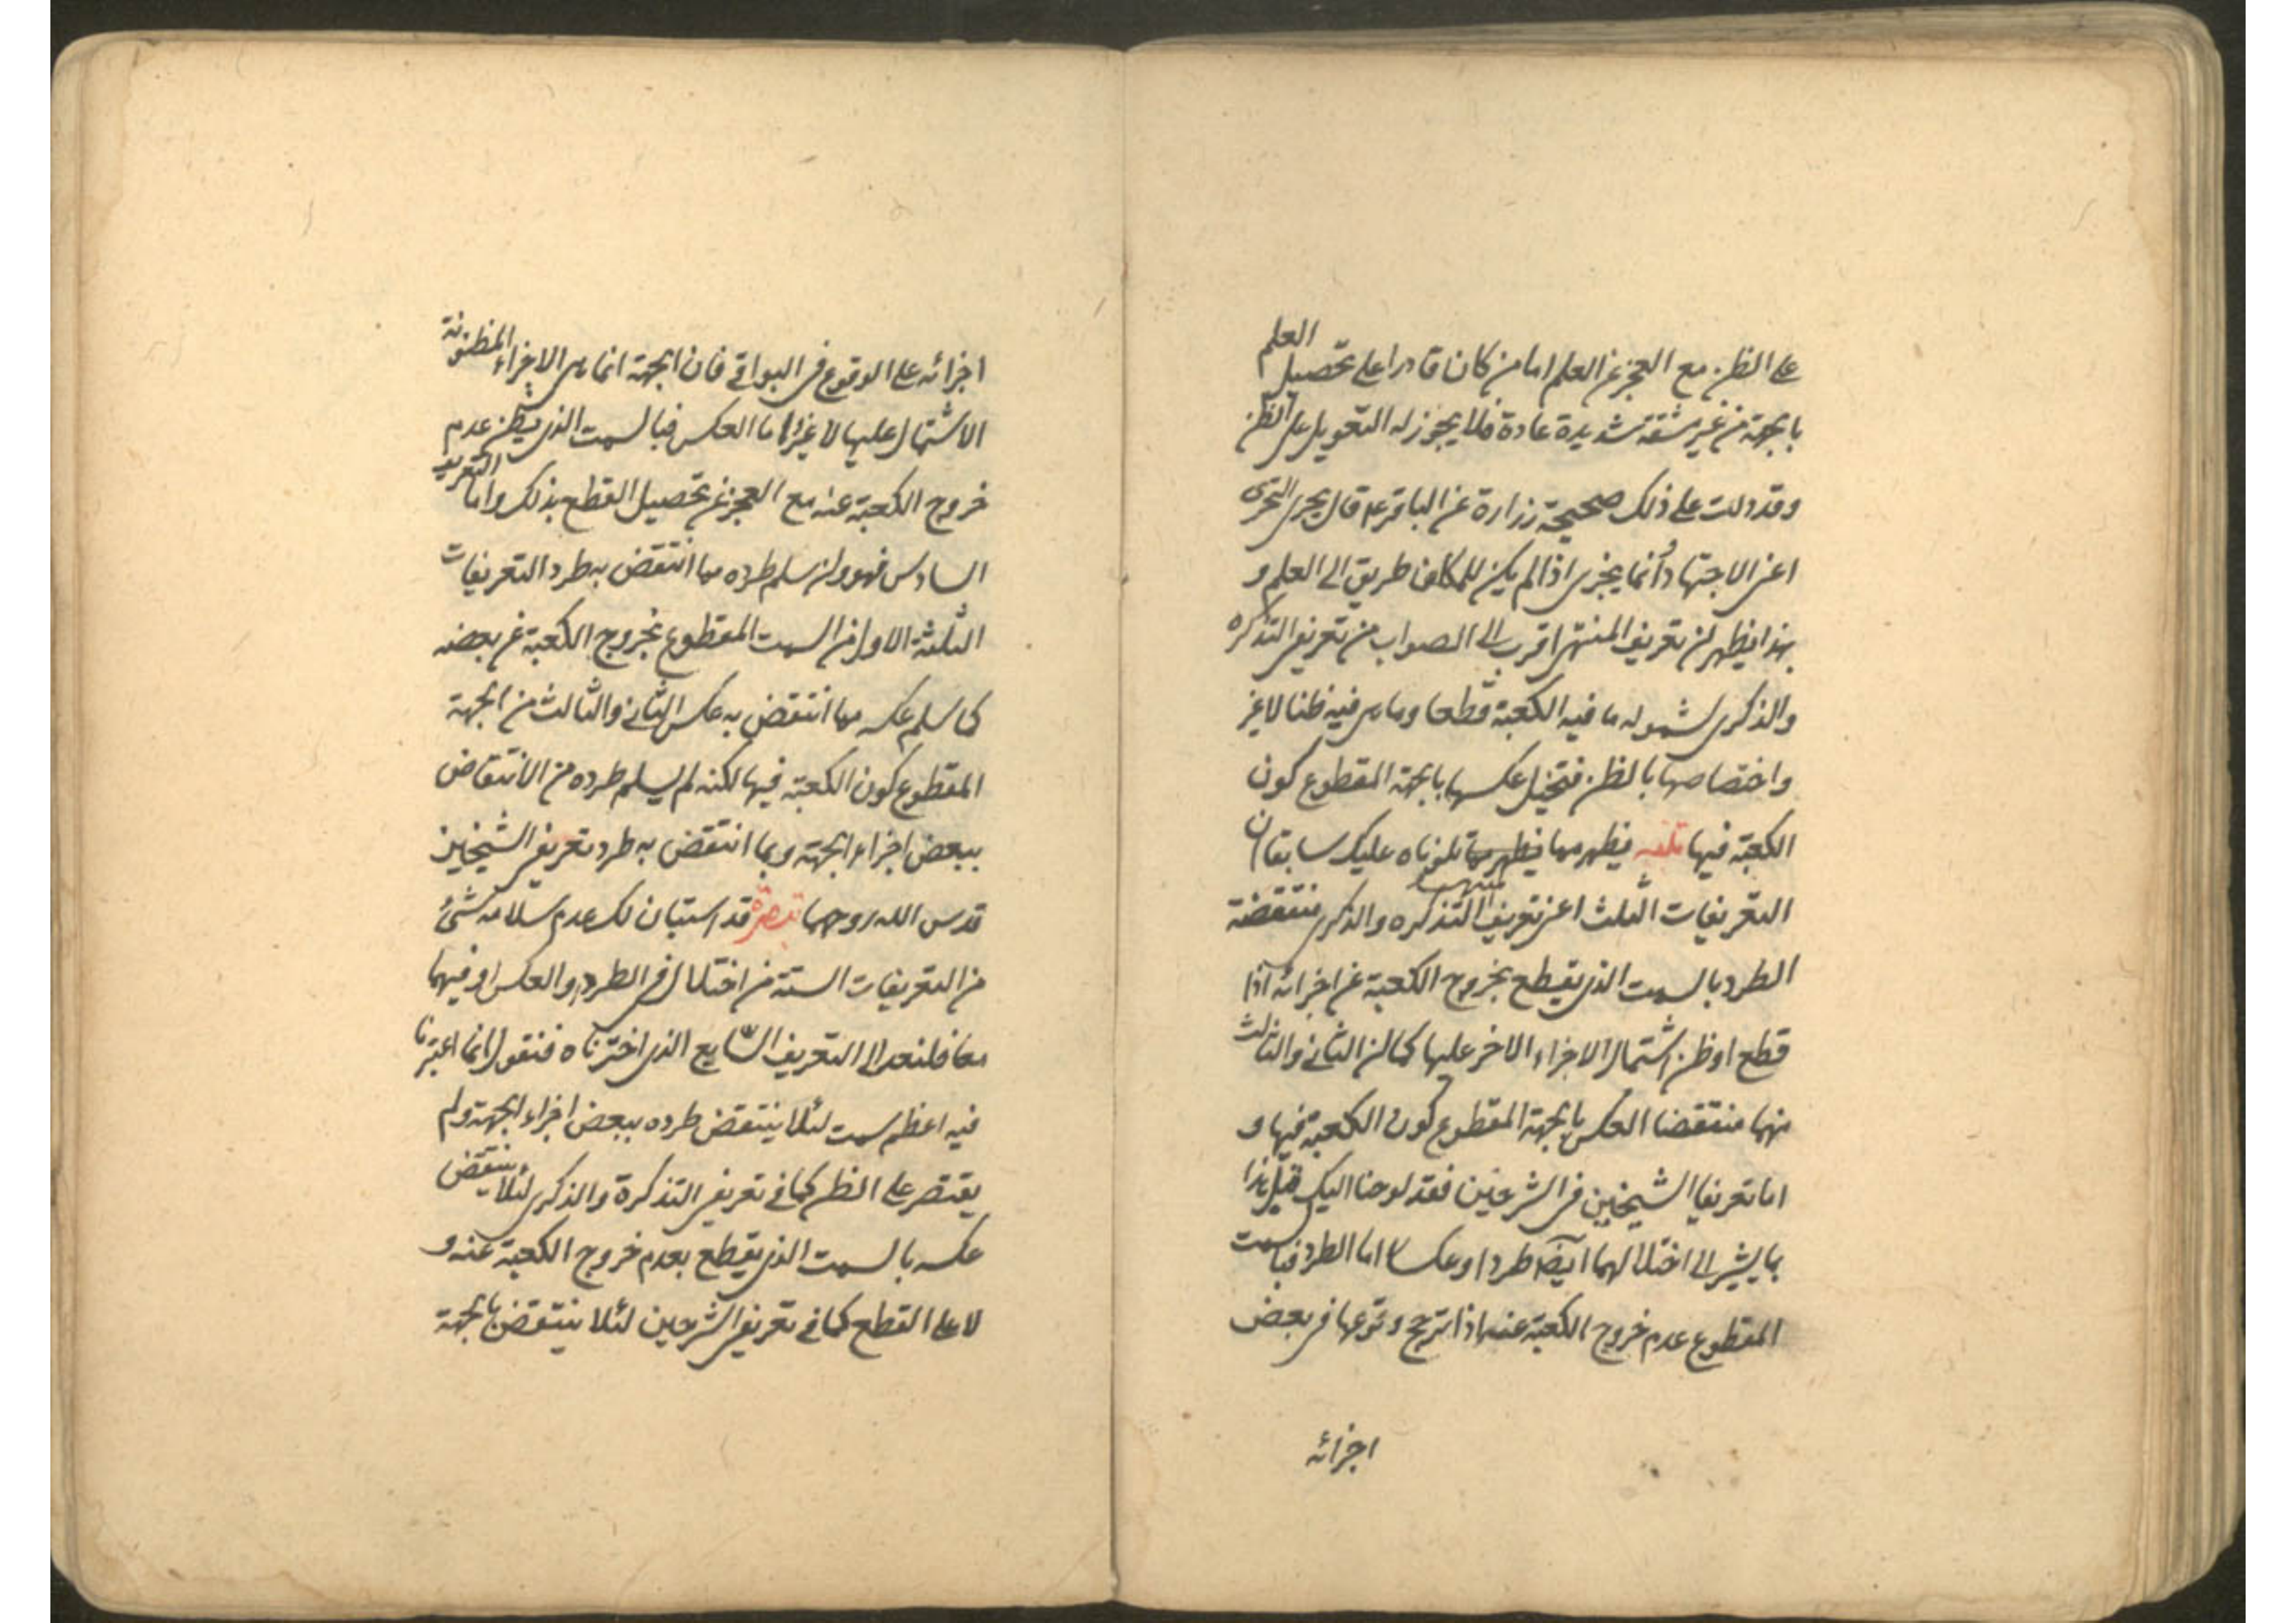 على الظن مع العجز عن العلم اما من كان قادرا على تحصيل العلم
بالجهة من غير مشقة شديدة عادة فلا يجوز له التعويل على الظن
وقد دلت على ذلك صحيحة زرارة عن الباقر ع قال يجزى التحرى
اعنى الاجتهاد وانما يجزى اذا لم يكن للمكلف طريق الى العلم و
بهذا يظهر ان تعريف المنتهى اقرب الى الصواب من تعريفى التذكره
والذكرى لشموله ما فيه الكعبة قطعا وما هى فيه ظنا لا غير
واختصاصها بالظن فتختل عكسها بالجهة المقطوع كون
الكعبة فيها يظهر مما فيظهر مما تلوناه عليك سابقا ان
التعريفات الثلث اعنى تعريف المنتهى التذكره والذكرى منتقضة
الطرد بالسمت الذى يقطع بخروج الكعبة عن اجزائه اذا
قطع او ظن اشتمال الاجزاء الاخر عليها كما ان الثانى والثالث
منهما منتقضا العكس بالجهة المقطوع كون الكعبة فيها و
اما تعريفا الشيخين فى الشرحين فقد لوحنا اليك قبل هذا
بما يشير الى اختلالهما ايضا طردا وعكسا اما الطرد فبالسمت
المقطوع عدم خروج الكعبة عنه اذا ترجح وقوعها فى بعض
اجزائه
اجزائه على الوقوع فى البواقى فان الجهة انما هى الاجزاء المظنونة
الاشتمال عليها لا غير واما العكس فبالسمت الذى يظن عدم
خروج الكعبة عنه مع العجز عن تحصيل القطع بذلك واما التعريف
السادس فهو وان سلم طرده مما انتقض به طرد التعريفات
الثلثة الاول من السمت المقطوع بخروج الكعبة عن بعضه
كما سلم عكسه مما انتقض به عكس الثانى والثالث من الجهة
المقطوع كون الكعبة فيها لكنه لم يسلم طرده من الانتقاض
ببعض اجزاء الجهة وبما انتقض به طرد تعريفى الشيخين
قدس الله روحهما تبصرة قد استبان لك عدم سلامه شئ
من التعريفات الستة من اختلال فى الطرد او العكس او فيهما
معا فلنعد الى التعريف السابع الذى اخترناه فنقول انما اعتبرنا
فيه اعظم سمت لئلا ينتقض طرده ببعض اجزاء الجهة ولم
يقتصر على الظن كما فى تعريفى التذكرة والذكرى لئلا ينتقض
عكسه بالسمت الذى يقطع بعدم خروج الكعبة عنه و
لا على القطع كما فى تعريفى الشرحين لئلا ينتقض بالجهة